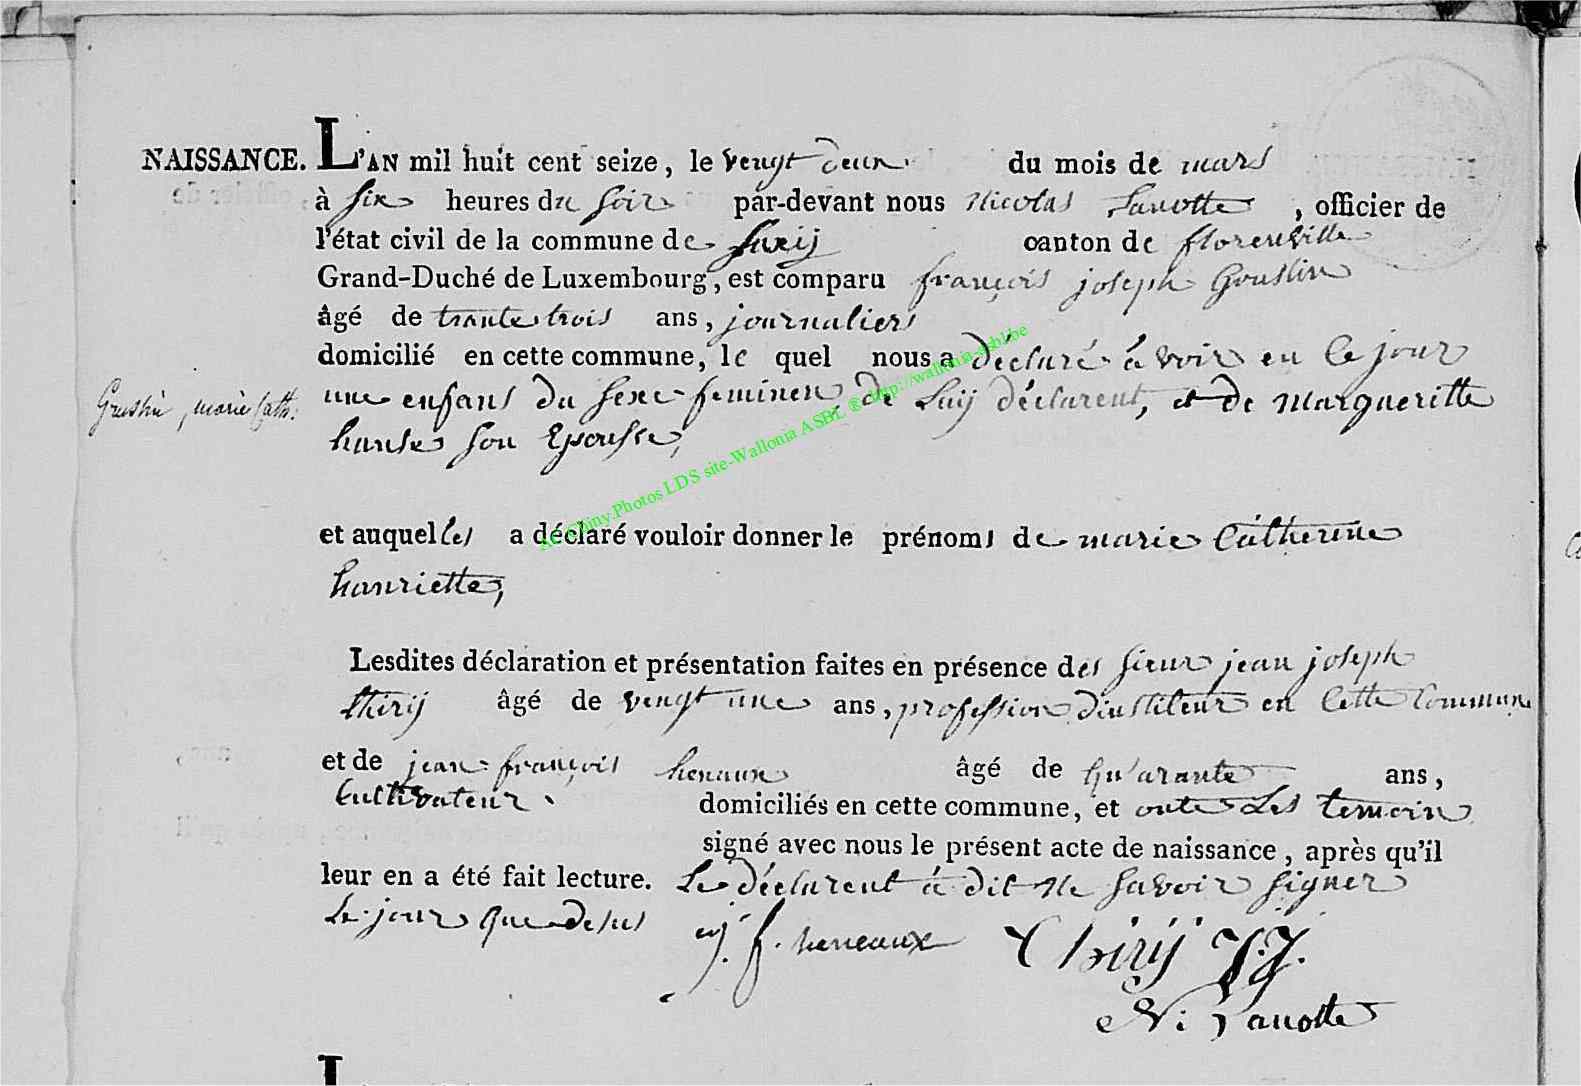 NAISSANCE. L'AN mil huit cent seize, le vengt deux du mois de mars
à six heures du soir par-devant nous Nicolas Lanotte, officier de
l'état civil de la commune de Suxij canton de florenville
Grand-Duché de Luxembourg, est comparu françois joseph Gouslin
âgé de trante trois ans, journaliers
domicilié en cette commune, le quel nous a déclaré à voir eu ce jour
une enfans du sexe feminen, de Luij déclarent, et de Marqueritte
hanse son Epousse,
marie Cath:
et auquelles a déclaré vouloir donner le prénoms de marie Catherine
hanriette,
Lesdites déclaration et présentation faites en présence des sieur jean joseph
thirij âgé de vengt une ans, profession d'institeur en Cette Commune
et de jean françois henaux âgé de qu'arante ans,
Cultivateur. domiciliés en cette commune, et onte Les temoin
signé avec nous le présent acte de naissance, après qu'il
leur en a été fait lecture. Le déclarent à dit ne savoir signer
Le jour que desus
j. f. heneaux Thirij J.J.
N: Lanotte
At. Chiny.Photos LDS site-Wallonia ASBL ® http://wallonia-asbl.be
L